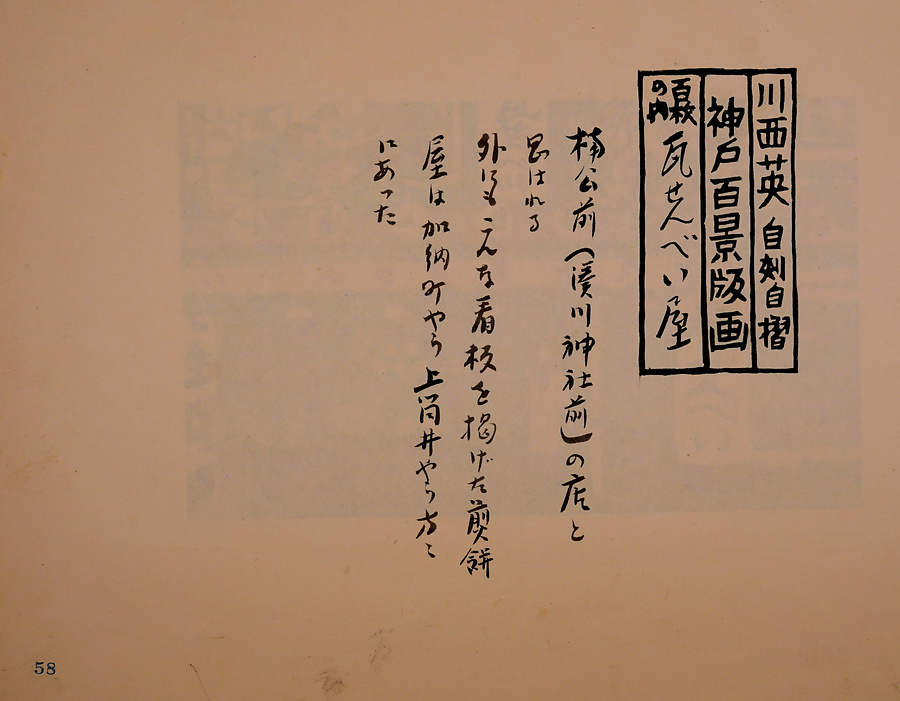 川西英 自刻自摺
神戸百景版画
百枚の内 瓦せんべい屋
楠公前（湊川神社前）の店と
思はれる
外にもこんな看板を掲げた煎餅
屋は加納町やら上筒井やら方々
にあった
58